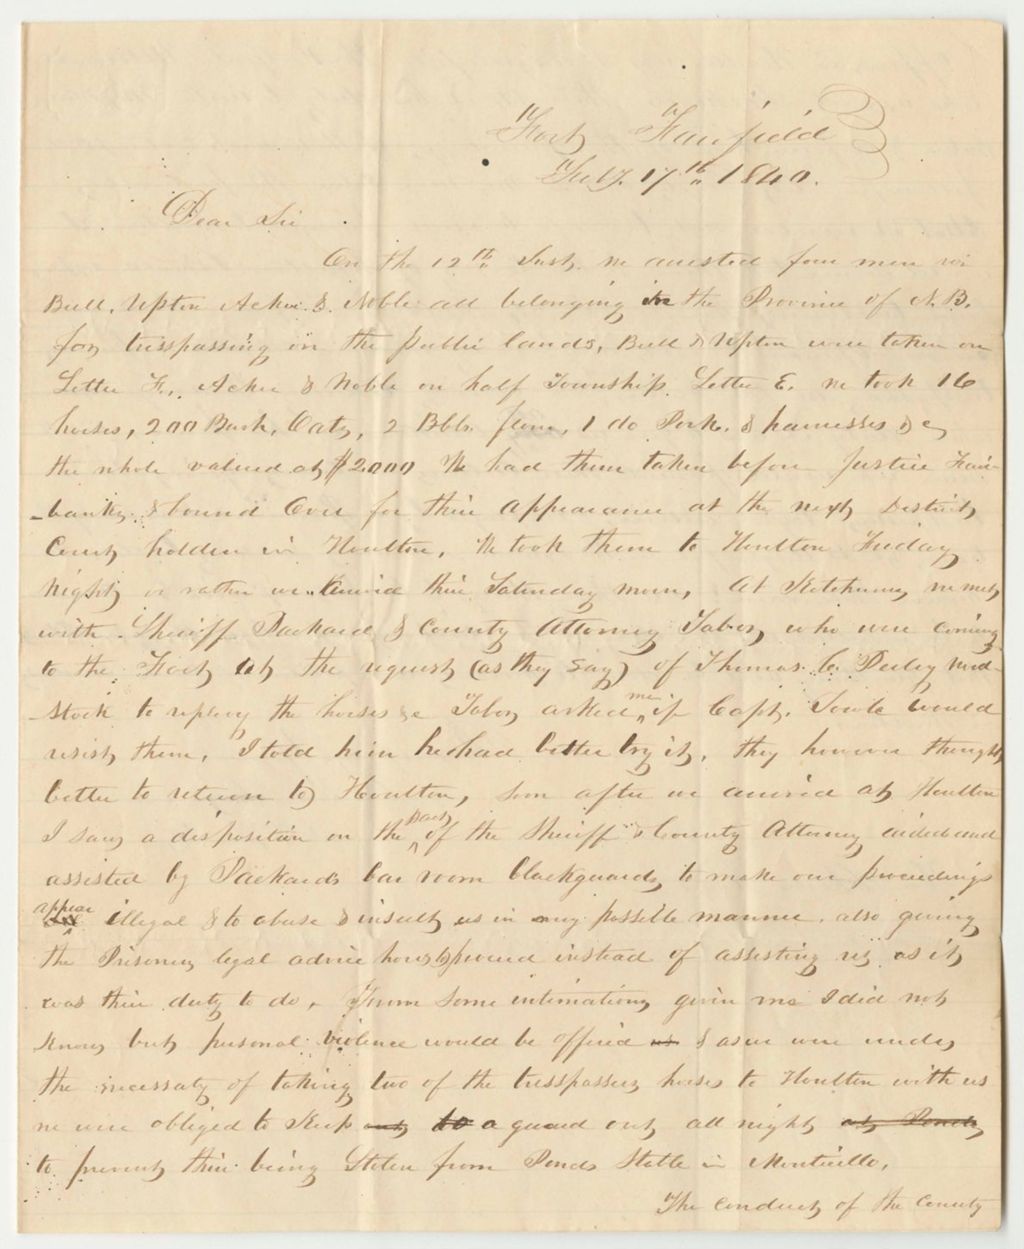 Fort Fairfield
Feby. 17th 1840.
Dear Sir
On the 12th Inst. we arrested four men viz
Bull, Upton Acker & Noble all belonging in the Province of N.B.
for tresspassing on the public lands, Bull & Upton were taken on
Letter F., Acker & Noble on half Township Letter E. we took 16
horses, 200 Bush, Oats, 2 Bbls. flour, 1 do Pork. & harnesses &c,
the whole valued at $2000 We had them taken before Justice Fair-
-banks & bound Over for their appearance at the next District
Court holden in Houlton, We took them to Houlton Friday
night or rather we arrived their Saturday morn, At Ketchums we met
with Sheriff Packard & County Attorney Tabor, who were coming
to the Fort at the request (as they say) of Thomas C. Perley Wood-
-stock to replevy the horses &c Tabor asked me if Capt. Towle would
resist them, I told him he had better try it, they however thought
better to return to Houlton, soon after we arrived at Houlton
I saw a disposition on the part of the Sheriff & County Attorney aided and
assisted by Packards bar room blackguards to make our proceedings
appear illegal & to abuse & insult us in any possible manner, also giving
the Prisoners legal advice how to proceed instead of assisting us as it
was their duty to do, From some intimations given me I did not
know but personal violence would be offered us & as we were under
the necessaty of taking two of the tresspassers horses to Houlton with us
we were obliged to Keep out to a guard out all night at Ponds
to prevent their being Stolen from Ponds Stable in Monticello,
The conduct of the County